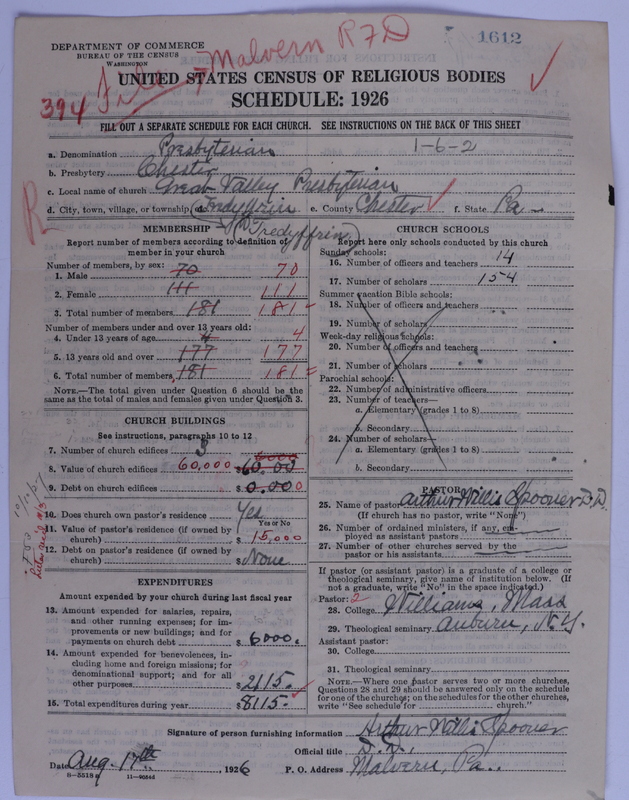 DEPARTMENT OF COMMERCE
BUREAU OF THE CENSUS
WASHINGTON
Malvern R F D
1612
394
UNITED STATES CENSUS OF RELIGIOUS BODIES
SCHEDULE: 1926
FILL OUT A SEPARATE SCHEDULE FOR EACH CHURCH. SEE INSTRUCTIONS ON THE BACK OF THIS SHEET
a. Denomination Presbyterian 1-6-2
b. Presbytery Chester
c. Local name of church Great Valley Presbyterian
d. City, town, village, or township Tredyffrin e. County Chester f. State Pa
(Tredyffrin)
MEMBERSHIP
Report number of members according to definition of member in your church
Number of members, by sex:
1. Male 70 70
2. Female 111 111
3. Total number of members 181 181
Number of members under and over 13 years old:
4. Under 13 years of age 4 4
5. 13 years old and over 177 177
6. Total number of members 181 181
NOTE.—The total given under Question 6 should be the
same as the total of males and females given under Question 3.
CHURCH BUILDINGS
See instructions, paragraphs 10 to 12
7. Number of church edifices 3
8. Value of church edifices 60,000 $ 60.00
9. Debt on church edifices $ 0.000
10. Does church own pastor's residence? Yes
Yes or No
11. Value of pastor's residence (if owned by
church) $ 15,000
12. Debt on pastor's residence (if owned by
church) $ None
EXPENDITURES
Amount expended by your church during last fiscal year
13. Amount expended for salaries, repairs,
and other running expenses; for im-
provements or new buildings; and for
payments on church debt $ 6000.
14. Amount expended for benevolences, in-
cluding home and foreign missions; for
denominational support; and for all
other purposes $ 2115.
15. Total expenditures during year $ 8115.
CHURCH SCHOOLS
Report here only schools conducted by this church
Sunday schools:
16. Number of officers and teachers 14
17. Number of scholars 154
Summer vacation Bible schools:
18. Number of officers and teachers
19. Number of scholars
Week-day religious schools:
20. Number of officers and teachers
21. Number of scholars
Parochial schools:
22. Number of administrative officers
23. Number of teachers—
a. Elementary (grades 1 to 8)
b. Secondary
24. Number of scholars—
a. Elementary (grades 1 to 8)
b. Secondary
PASTOR
25. Name of pastor Arthur Willis Spooner D.D.
(If church has no pastor, write "None")
26. Number of ordained ministers, if any, em-
ployed as assistant pastors
27. Number of other churches served by the
pastor or his assistants
If pastor (or assistant pastor) is a graduate of a college or
theological seminary, give name of institution below. (If
not a graduate, write "No" in the space indicated.)
Pastor: 2
28. College Williams, Mass
29. Theological seminary Auburn, N.Y.
Assistant pastor:
30. College
31. Theological seminary
NOTE.—Where one pastor serves two or more churches,
Questions 28 and 29 should be answered only on the schedule
for one of the churches; on the schedules for the other churches,
write "See schedule for church."
Signature of person furnishing information Arthur Willis Spooner
Official title D.D.
Date Aug. 17th, 1926 P. O. Address Malvern, Pa.
8-5518 11-9044d